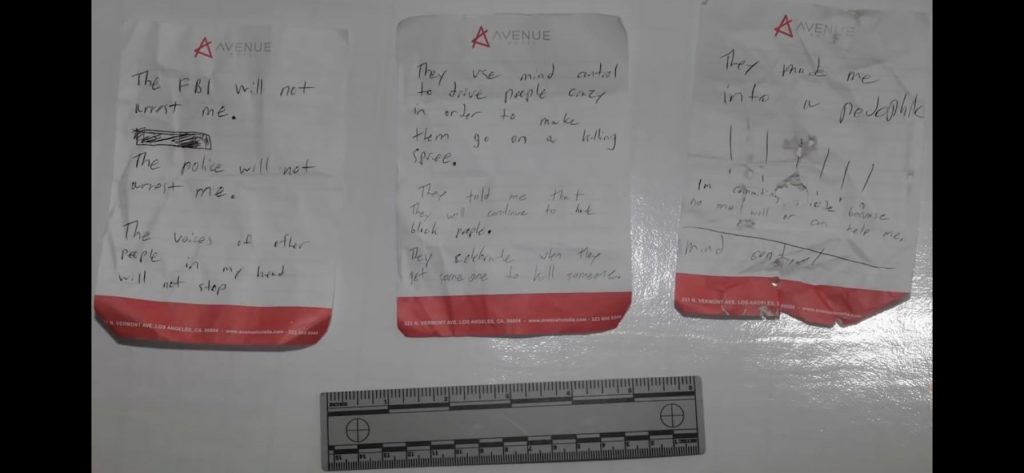 AVENUE
HOTEL
The FBI will not
arrest me.
The police will not
arrest me.
The voices of other
people in my head
will not stop
N. VERMONT AVE, LOS ANGELES, CA, 90004 - www.avenuehotella.com - 323
AVENUE
HOTEL
They use mind control
to drive people crazy
in order to make
them go on a killing
spree.
They told me that
They will continue to
black people.
They celebrate when they
get someone to kill someone.
321 N. VERMONT AVE, LOS ANGELES, CA, 90004 - www.avenuehotella.com - 323
AVENUE
They made me
into a pedophile
I'm committing suicide because
no one will or can help me.
mind control
N. VERMONT AVE, LOS ANGELES, CA, 90004 - www.avenuehotella.com - 323
INCHES
1
2
3
4
5
6
15
14
13
12
11
10
9
8
7
6
5
4
3
2
1